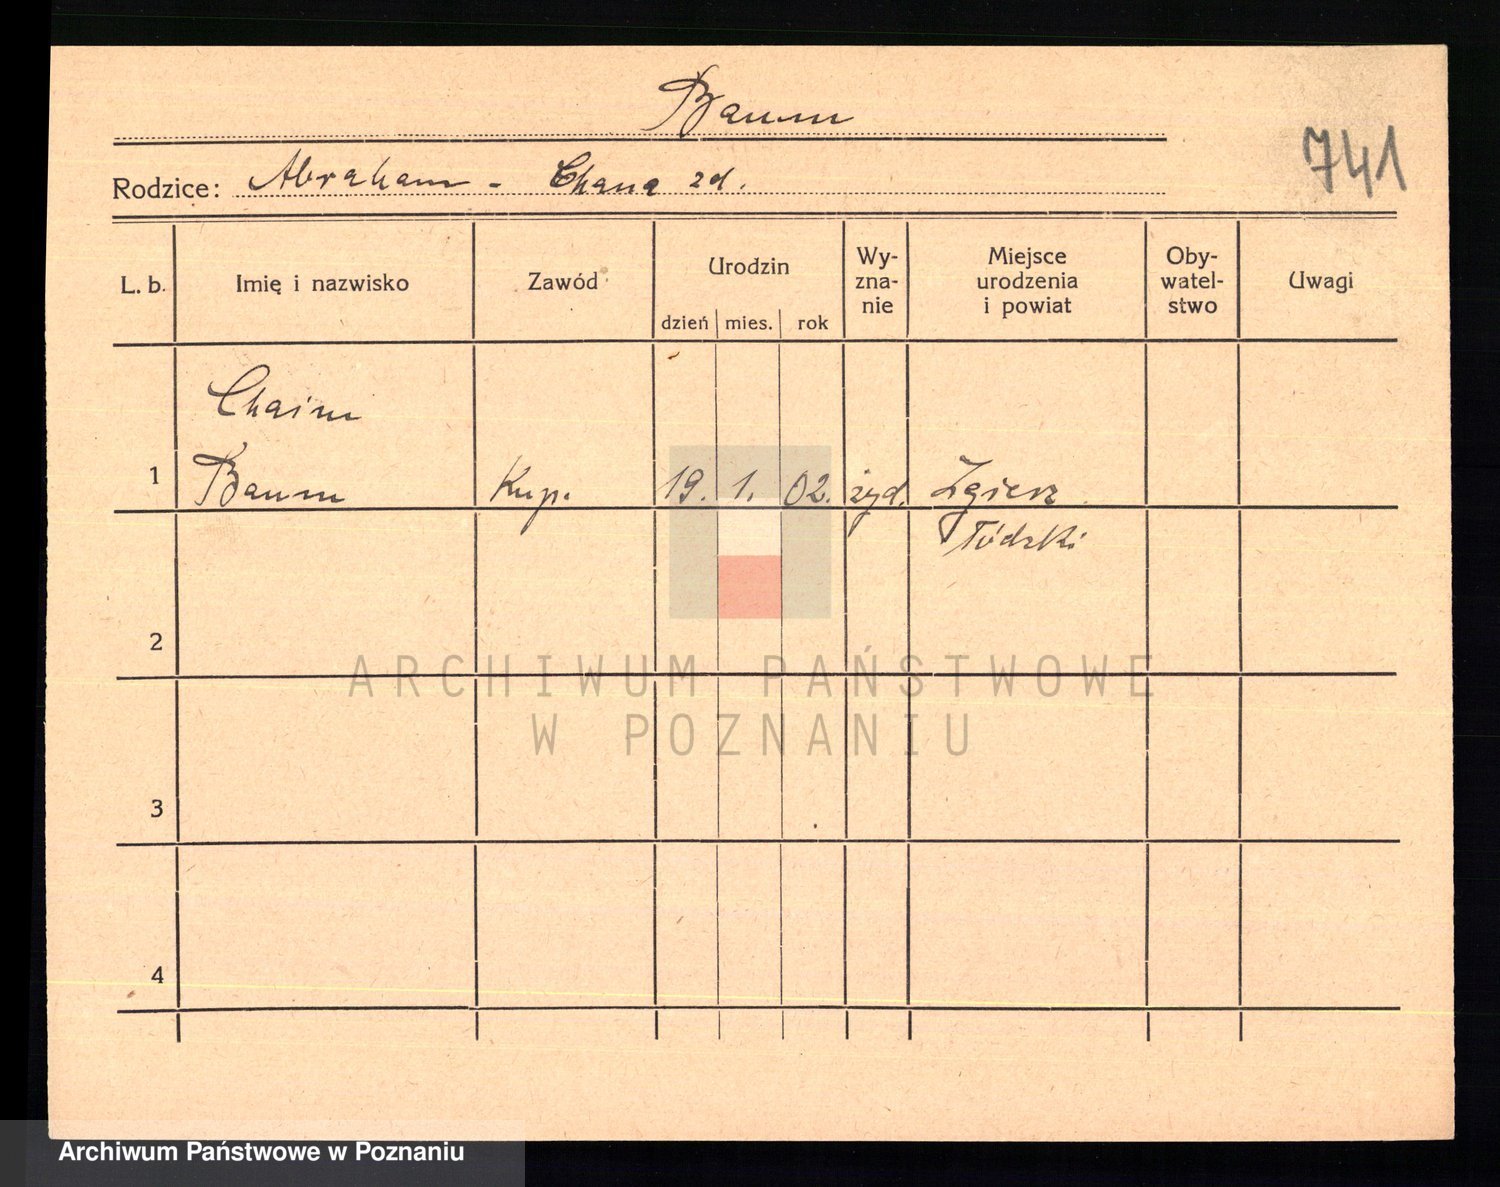 Baum
741
Rodzice: Abraham - Chana zd.
L. b. Imię i nazwisko Zawód Urodzin Wy-zna-nie Miejsce urodzenia i powiat Oby-watel-stwo Uwagi
dzień mies. rok
Chaim
1 Baum Kup. 19. 1. 02. żyd. Zgierz
Łódzki
2
ARCHIWUM PAŃSTWOWE
W POZNANIU
3
4
Archiwum Państwowe w Poznaniu